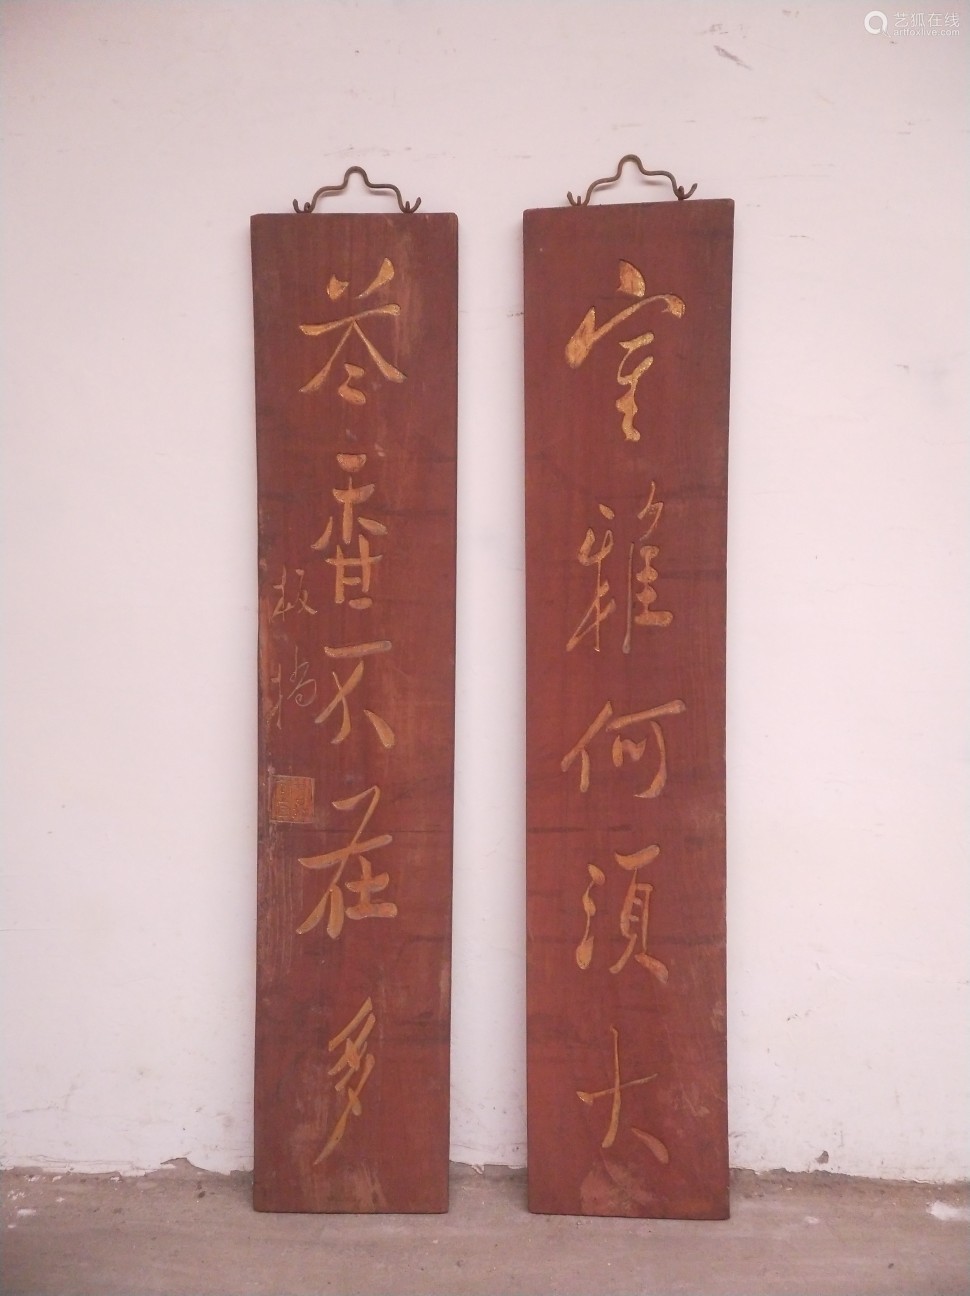 室雅何須大
花香不在多
板橋
艺狐在线
artfoxlive.com